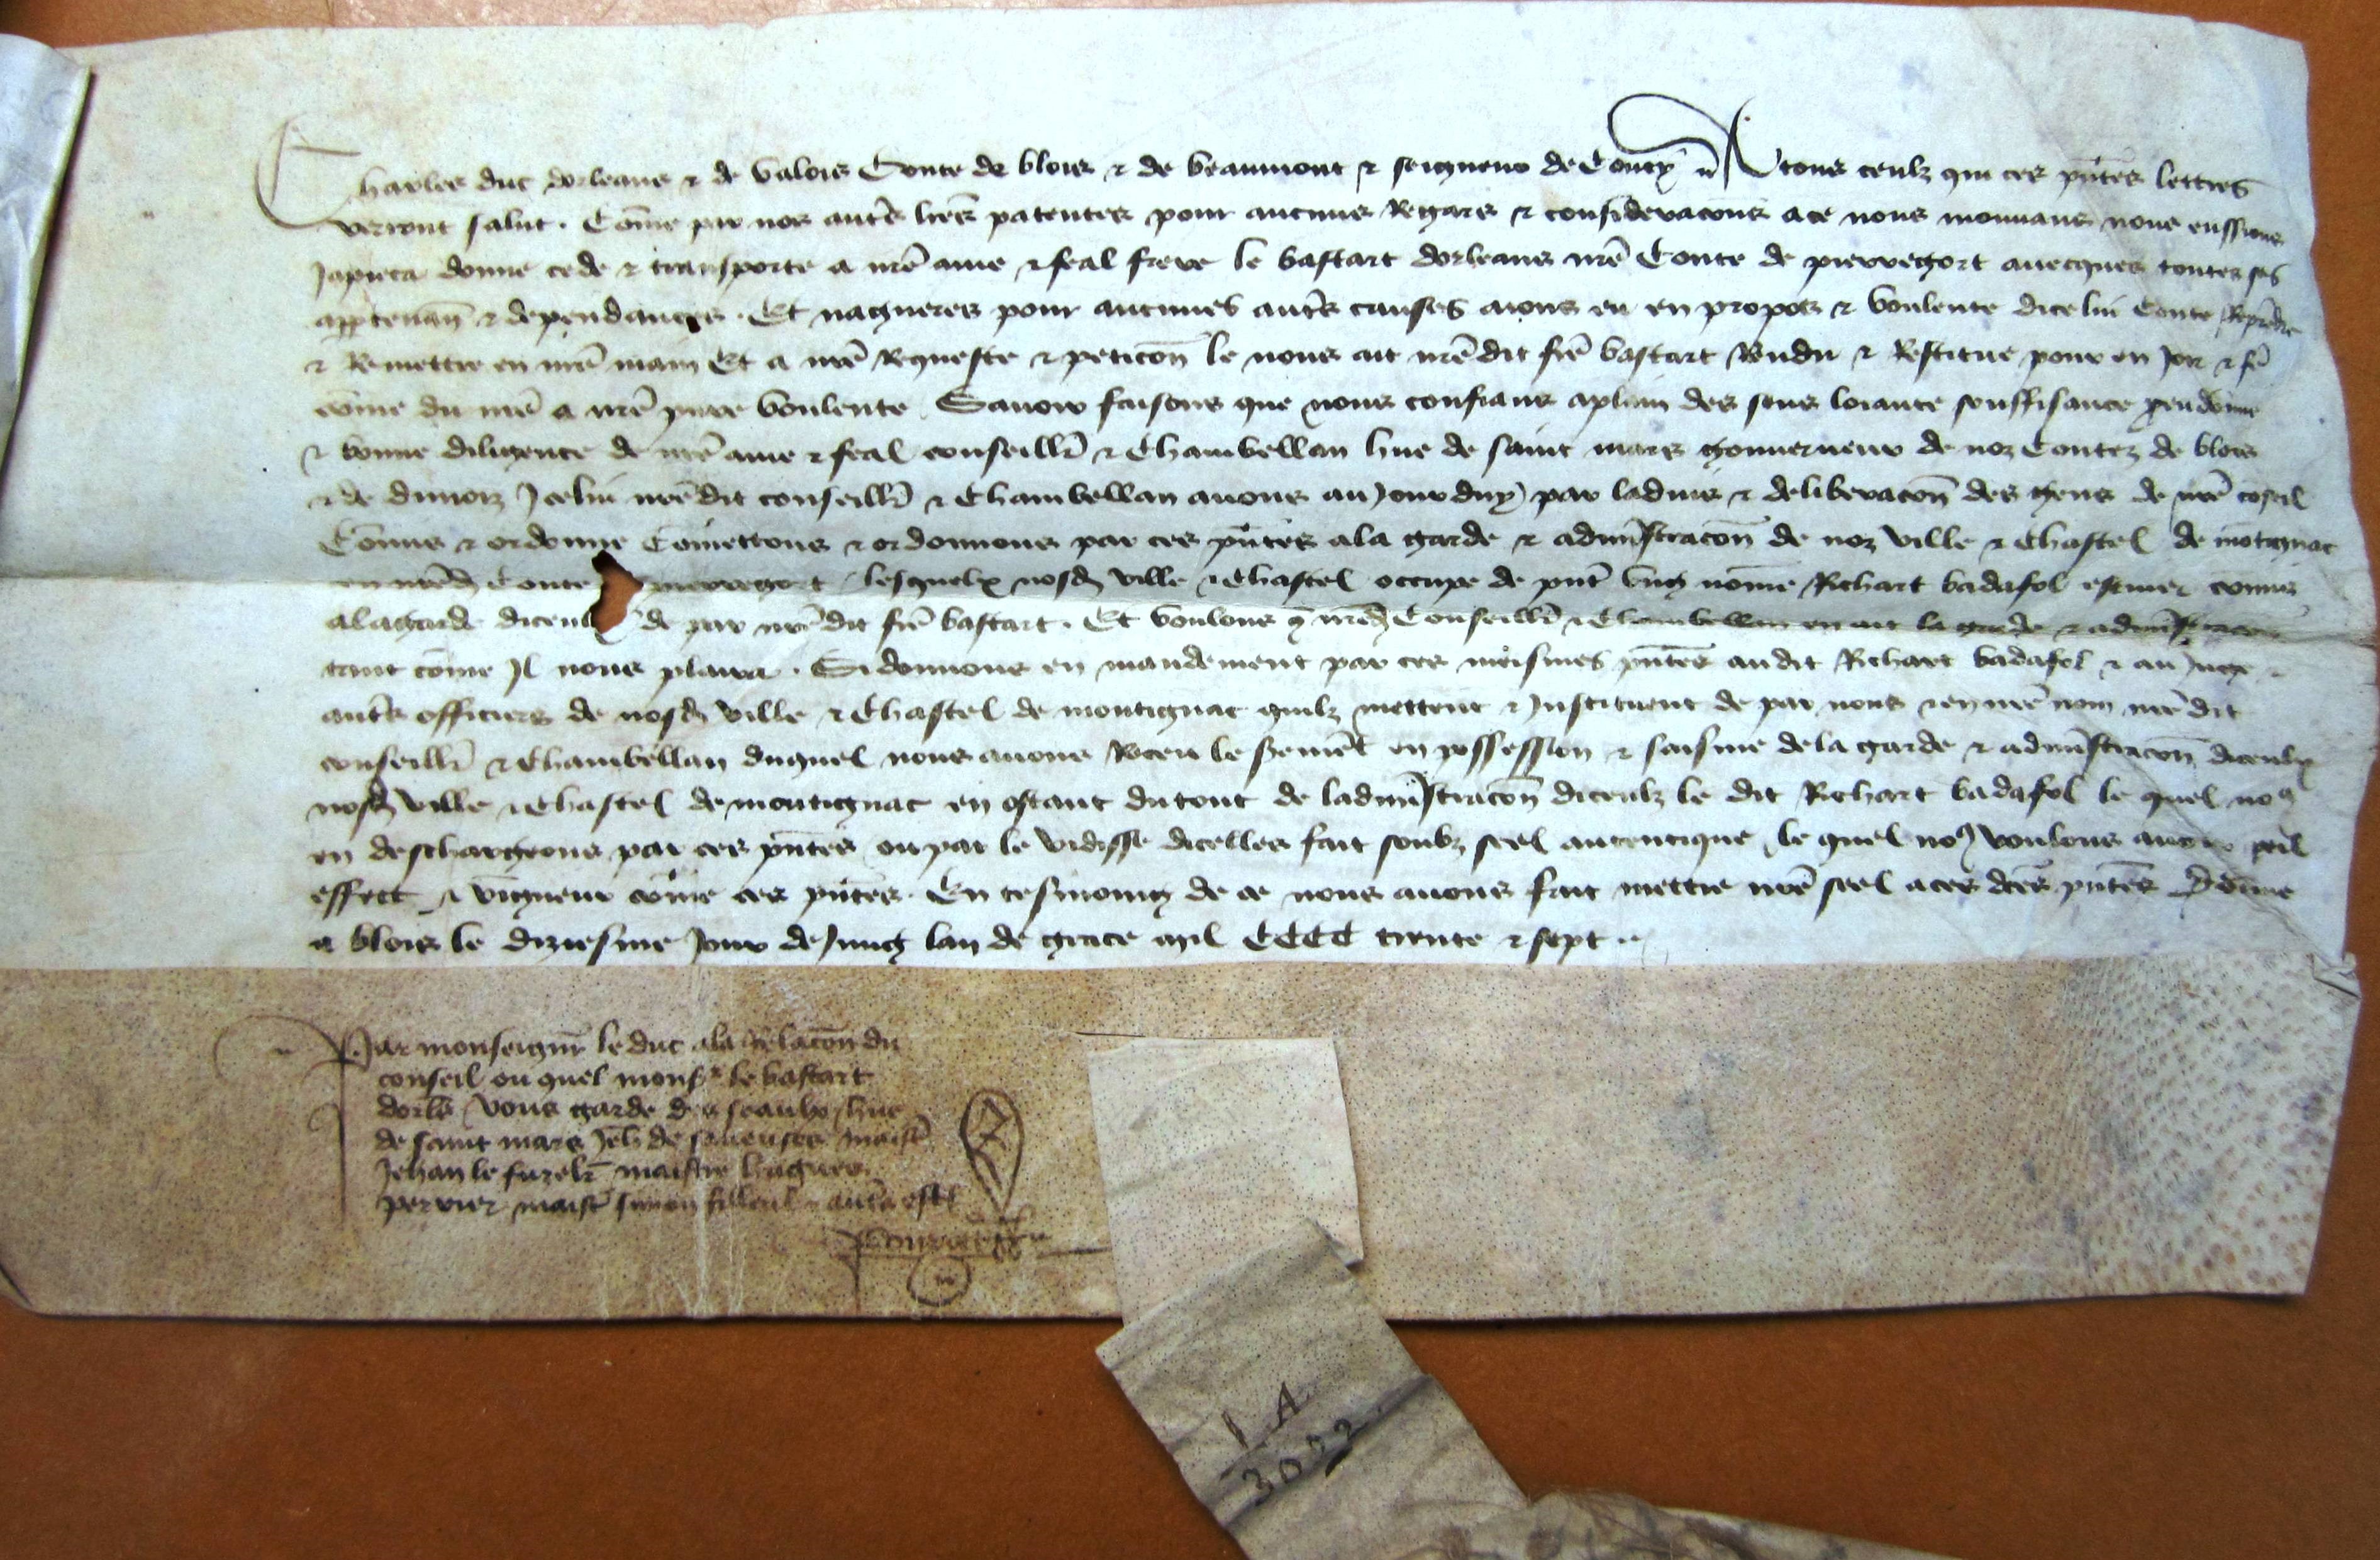 Charles duc dorleans & de Valois Conte de blois & de beaumont & seigneur de Coucy A tous ceulz qui ces pñtes lettres
verront salut . Cõme par noz autẽs lrẽs patentes pour aucuns Regars & consideracõns a ce nous mouuans nous eussions
Japieca donne cede & transporte a nrẽ ame & feal frere le bastart dorleans nrẽ Conte de pierregort auecques toutes ses
apptenañ & dependances . Et nagueres pour aucunes autẽs causes aions eu en propos & voulente dicelui Conte Reprẽdre
& Remettre en nrẽ main Et a nrẽ Requeste & peticõn le nous ait nrẽ dit frẽ bastart Rendu & Restitue pour en Joir & fẽ
cõme du nrẽ a nrẽ pure voulente . Sauoir faisons que nous confians aplain des sens loiaute souffisance preudõmie
& bonne diligence de nrẽ ame & feal conseillr̃ & Chambellan hue de saint mars gouuerneur de noz Contez de blois
& de dunois Jcelui nrẽ dit conseillr̃ & Chambellan auons auJourduy par laduis & deliberacõn des gens de nrẽ cõseil
Cõmis & ordonne Cõmettons & ordonnons par ces pñtes ala garde & admĩstracõn de noz ville & Chastel de mõtignac
en nrẽd Conte pierregort / lesquelx nosd ville & Chastel occupe de pñt vng nõme Richart badafol escuier cõmis
ala garde diceulx de par nrẽ dit frẽ bastart . Et voulons q̃ nrẽd Conseillr̃ & Chambellan en ait la garde & admĩstracõn
tant cõme Jl nous plaira . Si donnons en mandement par ces meismes pñtes audit Richart badafol & au Juge &
autẽs officiers de nosd ville & Chastel de montignac quilz mettent & Jnstituent de par nous & en nrẽ nom nrẽ dit
conseillr̃ & Chambellan duquel nous auons Receu le sermẽt en possession & saisine de la garde & admĩstracõn diceulx
nosd ville & Chastel de montignac en ostant du tout de ladmĩstracõn diceulz le dit Richart badafol le quel noꝰ
en deschargeons par ces pñtes ou par le vidisse dicelles fait soubz seel autentique , le quel noꝰ voulons auoir peil
effect & vigueur cõme ces pñtes . En tesmoing de ce nous auons fait mettre nrẽ seel a ces dcẽs pñtes Dõnne
a blois le diziesme Jour de Juing lan de grace mil CCCC trente & sept
Par monseignr̃ le duc ala Relacõn du
conseil ou quel monsr le bastart
dorlẽs Vous garde des seaulx hue
de saint mars Jeh̃ de saueuses maistr̃
Jehan le fuzelr̃ maistre hugues
perrier maistr̃ simon filleul & autẽs estoi
1 A
3022